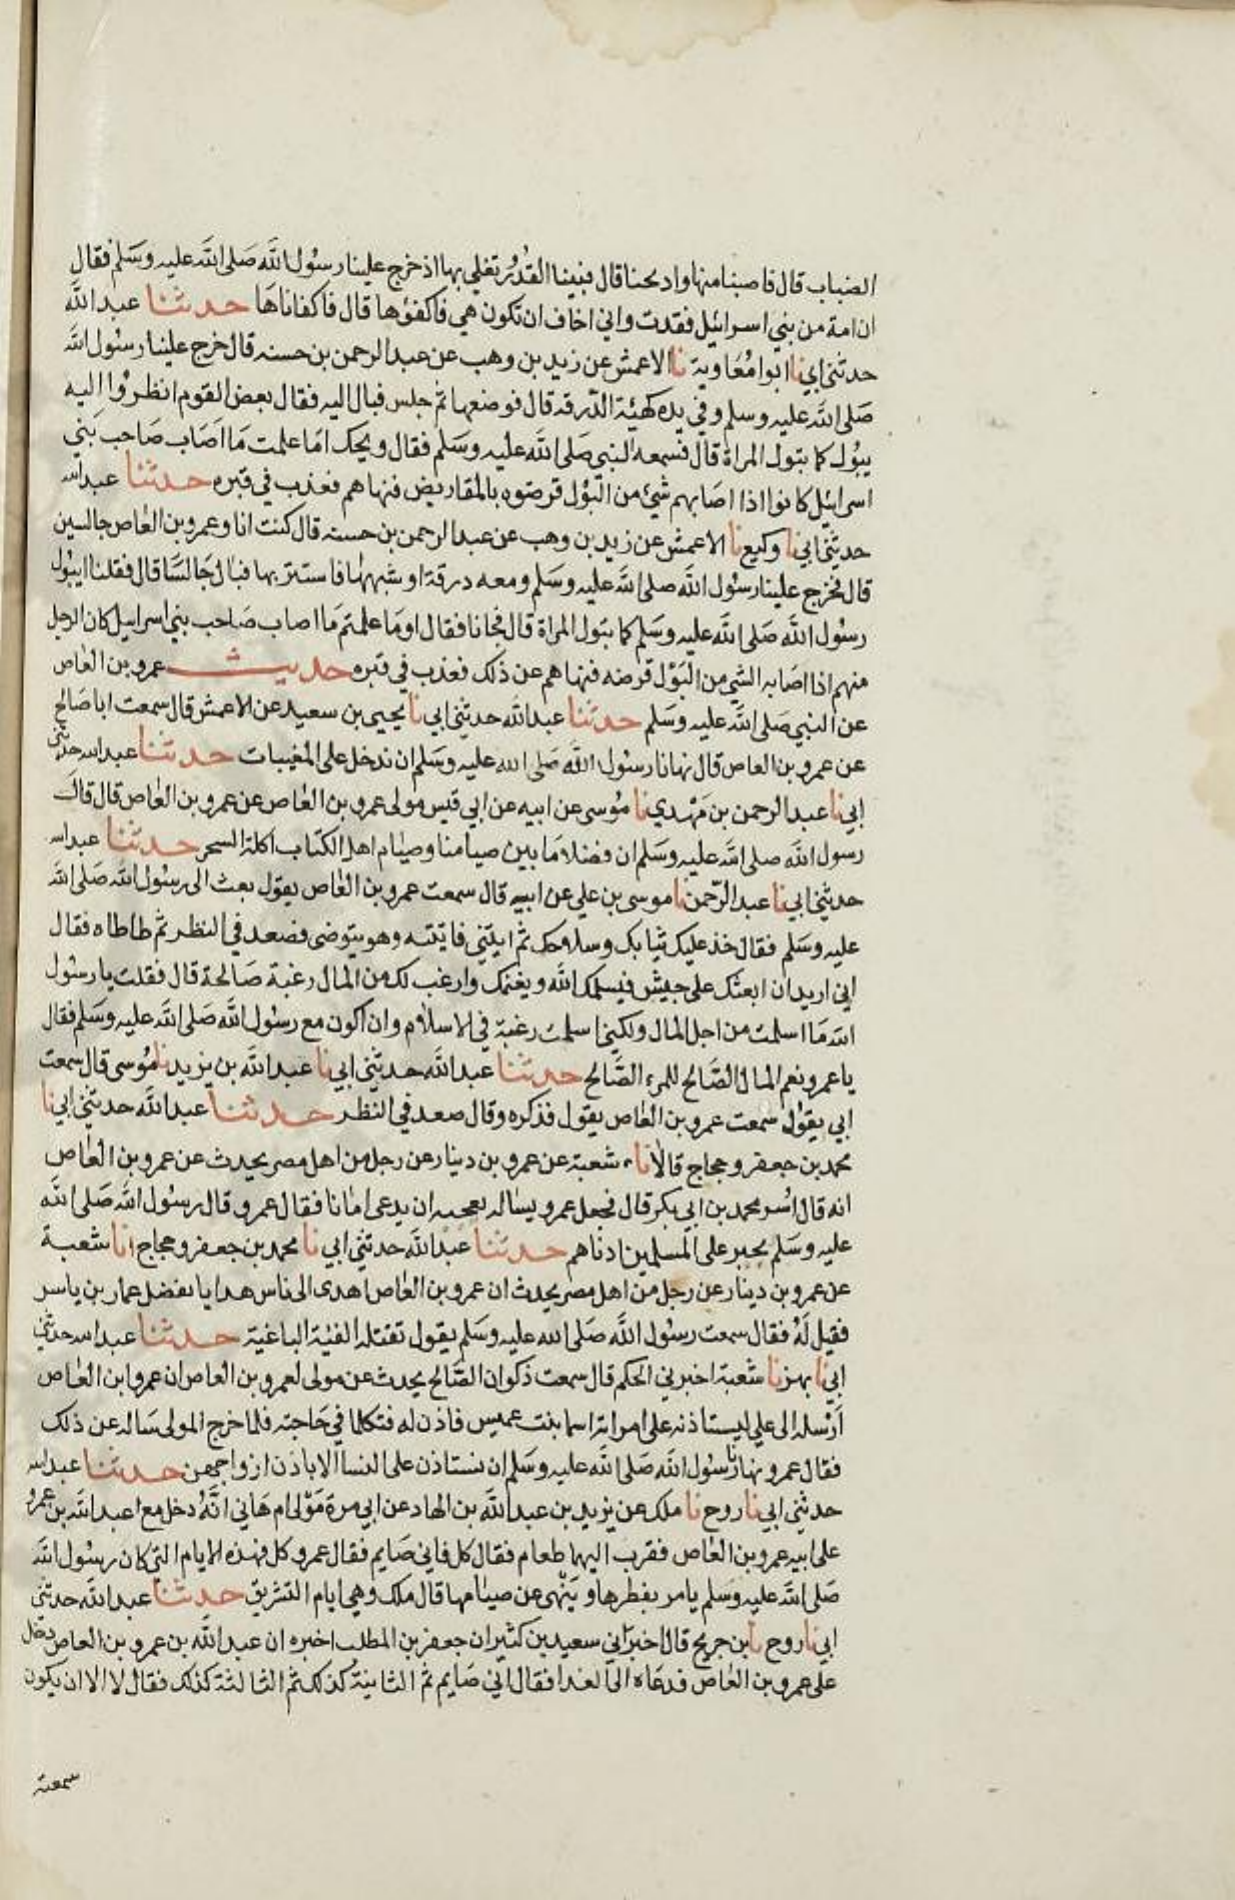 الضباب قال فاصبنا منها وادبحنا قال فبينا القدور تغلي بها اذ خرج علينا رسول الله صلى الله عليه وسلم فقال
ان امة من بني اسرائيل فقدت واني اخاف ان تكون هي فاكفؤها قال فاكفاناها حدثنا عبد الله
حدثني ابي نا ابوا معاوية نا الاعمش عن زيد بن وهب عن عبد الرحمن بن حسنه قال خرج علينا رسول الله
صلى الله عليه وسلم وفي يده كهيئة الدرقه قال فوضعها ثم جلس فبال اليه فقال بعض القوم انظروا اليه
يبول كما تبول المراة قال فسمعه النبي صلى الله عليه وسلم فقال ويحك اما علمت ما اصاب صاحب بني
اسرائيل كانوا اذا اصابهم شيء من البول قرضوه بالمقاريض فنهاهم فعذب في قبره حدثنا عبد الله
حدثني ابي نا وكيع نا الاعمش عن زيد بن وهب عن عبد الرحمن بن حسنه قال كنت انا وعمرو بن العاص جالسين
قال فخرج علينا رسول الله صلى الله عليه وسلم ومعه درقة او شبهها فاستتر بها فبال جالسا قال فقلنا ايبول
رسول الله صلى الله عليه وسلم كما تبول المراة قال فجانا فقال اوما علمتم ما اصاب صاحب بني اسرايل كان الرجل
منهم اذا اصابه الشي من البول قرضه فنهاهم عن ذلك فعذب في قبره حديث عمرو بن العاص
عن النبي صلى الله عليه وسلم حدثنا عبد الله حدثني ابي نا يحيى بن سعيد عن الاعمش قال سمعت ابا صالح
عن عمرو بن العاص قال نهانا رسول الله صلى الله عليه وسلم ان ندخل على المغيبات حدثنا عبد الله حدثني
ابي نا عبد الرحمن بن مهدي نا موسى عن ابيه عن ابي قيس مولى عمرو بن العاص عن عمرو بن العاص قال قال
رسول الله صلى الله عليه وسلم ان فضلا ما بين صيامنا وصيام اهل الكتاب اكلة السحر حدثنا عبد الله
حدثني ابي نا عبد الرحمن نا موسى بن علي عن ابيه قال سمعت عمرو بن العاص يقول بعث الى رسول الله صلى الله
عليه وسلم فقال خذ عليك ثيابك وسلاحك ثم ايتني فاتيته وهو يتوضى فصعد في النظر ثم طاطاه فقال
اني اريد ان ابعثك على جيش فيسلمك الله ويغنمك وارغب لك من المال رغبة صالحة قال فقلت يا رسول
الله ما اسلمت من اجل المال ولكني اسلمت رغبة في الاسلام وان اكون مع رسول الله صلى الله عليه وسلم فقال
يا عمرو نعم المال الصالح للمرء الصالح حدثنا عبد الله حدثني ابي نا عبد الله بن يزيد نا موسى قال سمعت
ابي يقول سمعت عمرو بن العاص يقول فذكره وقال صعد في النظر حدثنا عبد الله حدثني ابي نا
محمد بن جعفر وحجاج قالا نا شعبة عن عمرو بن دينار عن رجل من اهل مصر يحدث عن عمرو بن العاص
انه قال اسر محمد بن ابي بكر قال فجعل عمرو يساله يعجبه ان يدعى امانا فقال عمرو قال رسول الله صلى الله
عليه وسلم يجير على المسلمين ادناهم حدثنا عبد الله حدثني ابي نا محمد بن جعفر وحجاج انا شعبة
عن عمرو بن دينار عن رجل من اهل مصر يحدث ان عمرو بن العاص اهدى الى ناس هدايا ففضل عمار بن ياسر
فقيل له فقال سمعت رسول الله صلى الله عليه وسلم يقول تقتله الفئة الباغية حدثنا عبد الله حدثني
ابي نا بهز نا شعبة اخبرني الحكم قال سمعت ذكوان ابا صالح يحدث عن مولى لعمرو بن العاص ان عمرو ابن العاص
ارسله الى علي ليستاذنه على امراته اسما بنت عميس فاذن له فتكلما في حاجته فلما خرج المولى ساله عن ذلك
فقال عمرو نهانا رسول الله صلى الله عليه وسلم ان نستاذن على النسا الا باذن ازواجهن حدثنا عبد الله
حدثني ابي نا روح نا ملك عن يزيد بن عبد الله بن الهاد عن ابي مرة مولى ام هاني انه دخل مع عبد الله بن عمرو
على ابيه عمرو بن العاص فقرب اليهما طعام فقال كل فاني صايم فقال عمرو كل فهذه الايام التي كان رسول الله
صلى الله عليه وسلم يامر بفطرها وينهى عن صيامها قال ملك وهي ايام التشريق حدثنا عبد الله حدثني
ابي نا روح نا ابن جريج قال اخبرني سعيد بن كثير ان جعفر بن المطلب اخبره ان عبد الله بن عمرو بن العاص دخل
على عمرو بن العاص فدعاه الى الغدا فقال اني صايم ثم الثانية كذلك ثم الثالثة كذلك فقال لا الا ان يكون
سمعته